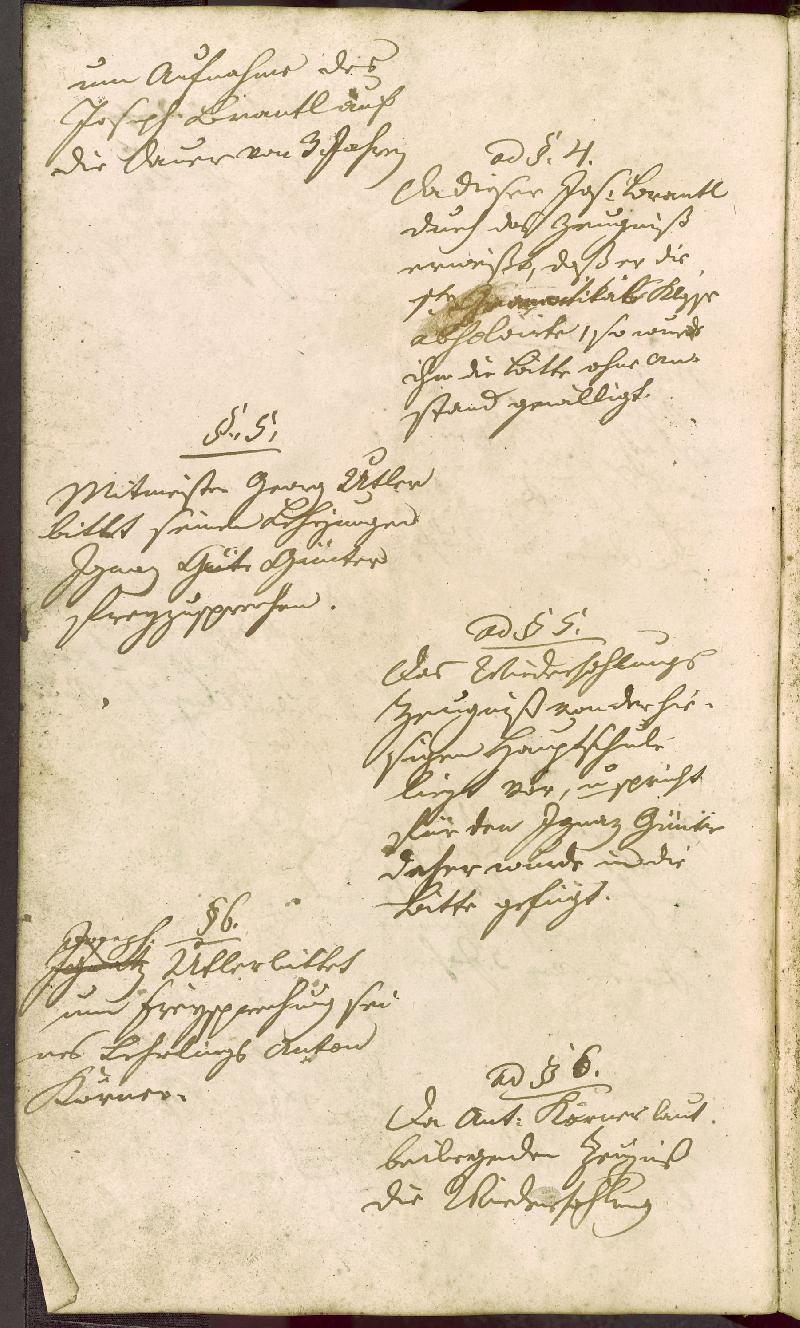 um Aufnahme des
Joseph Brantl auf
die Dauer von 3 Jahren
ad §. 4.
Da dieser Jos: Brantl
durch das Zeugniß
erweißt, daß er die
1te Grammatikals Klasse
absolvirte, so wurde
ihm die Bitte ohne An-
stand gewilligt.
§. 5.
Mitmeister Georg Utler
bittet seinen Lehrjungen
Ignaz Günter
freyzusprechen.
ad § 5.
Das Wiederhohlungs
Zeugniß von der hie-
sigen Hauptschule
liegt vor, u spricht
für den Ignaz Günter
daher wurde in die
Bitte gefügt.
§ 6.
Joseph
Utler bittet
um Freysprechung sei
nes Lehrlings Anton
Körner.
ad § 6.
Da Ant: Körner laut
beiliegenden Zeugniß
die Wiederhohlung